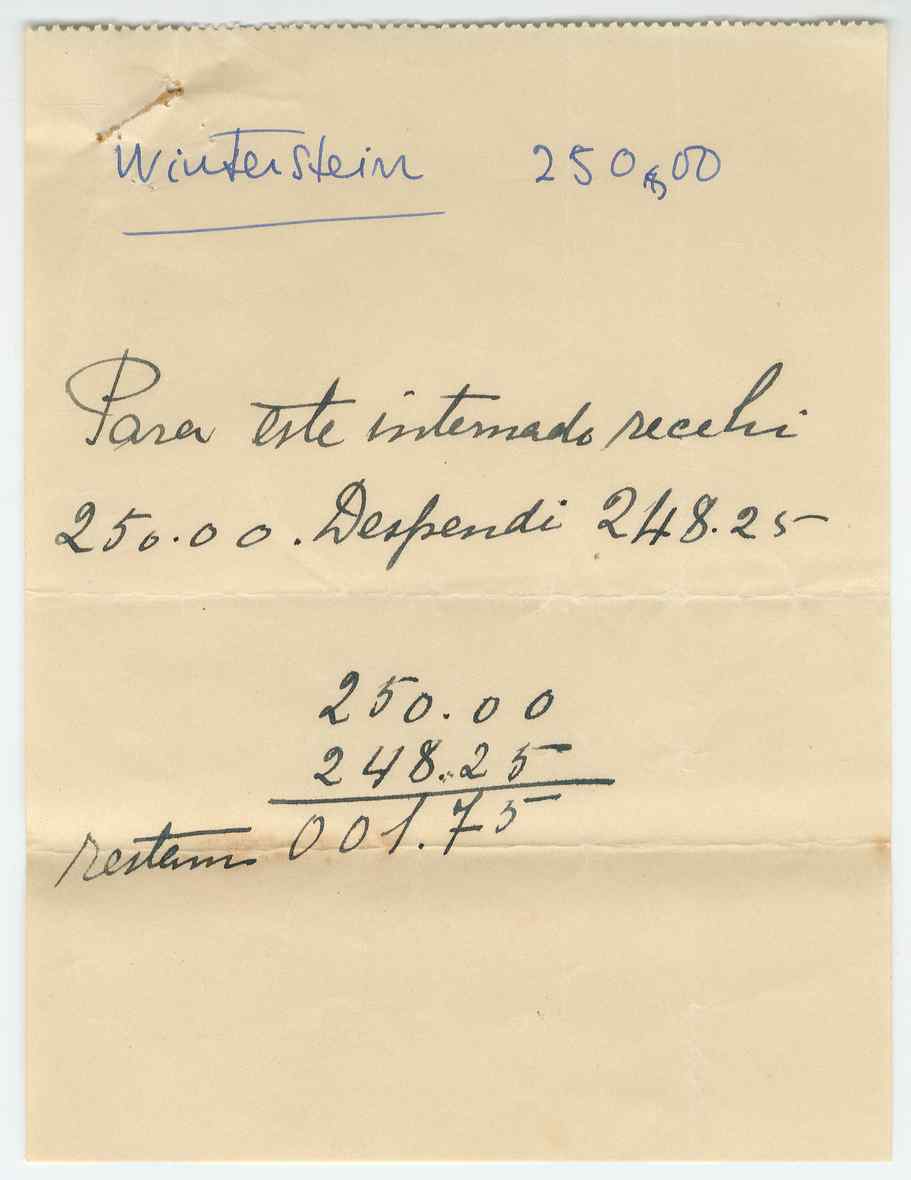 Winterstein 250$00
Para este internado recebi
250.00. Despendi 248.25
250.00
248.25
restam 001.75